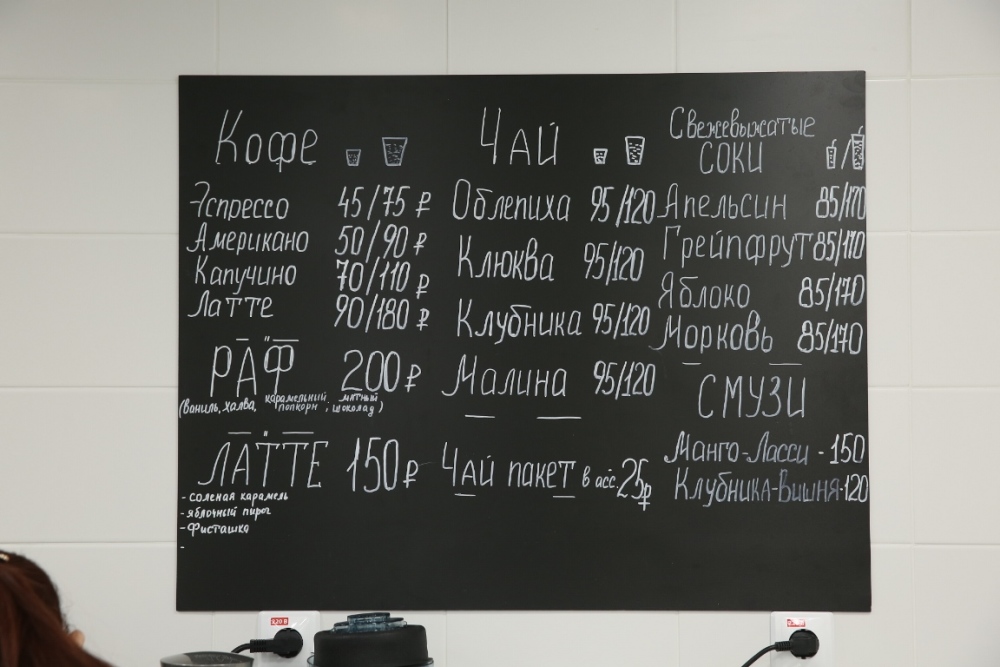 Кофе
Эспрессо 45/75 ₽
Американо 50/90 ₽
Капучино 70/110 ₽
Латте 90/180 ₽
РАФ 200₽
(ваниль, халва, карамельный попкорн, мятный шоколад)
ЛАТТЕ 150₽
- соленая карамель
- яблочный пирог
- Фисташка
-
ЧАЙ
Облепиха 95/120
Клюква 95/120
Клубника 95/120
Малина 95/120
ЧАЙ пакет в асс. 25₽
Свежевыжатые
СОКИ /
Апельсин 85/170
Грейпфрут 85/170
Яблоко 85/170
Морковь 85/170
СМУЗИ
Манго-Ласси - 150
Клубника-Вишня-120